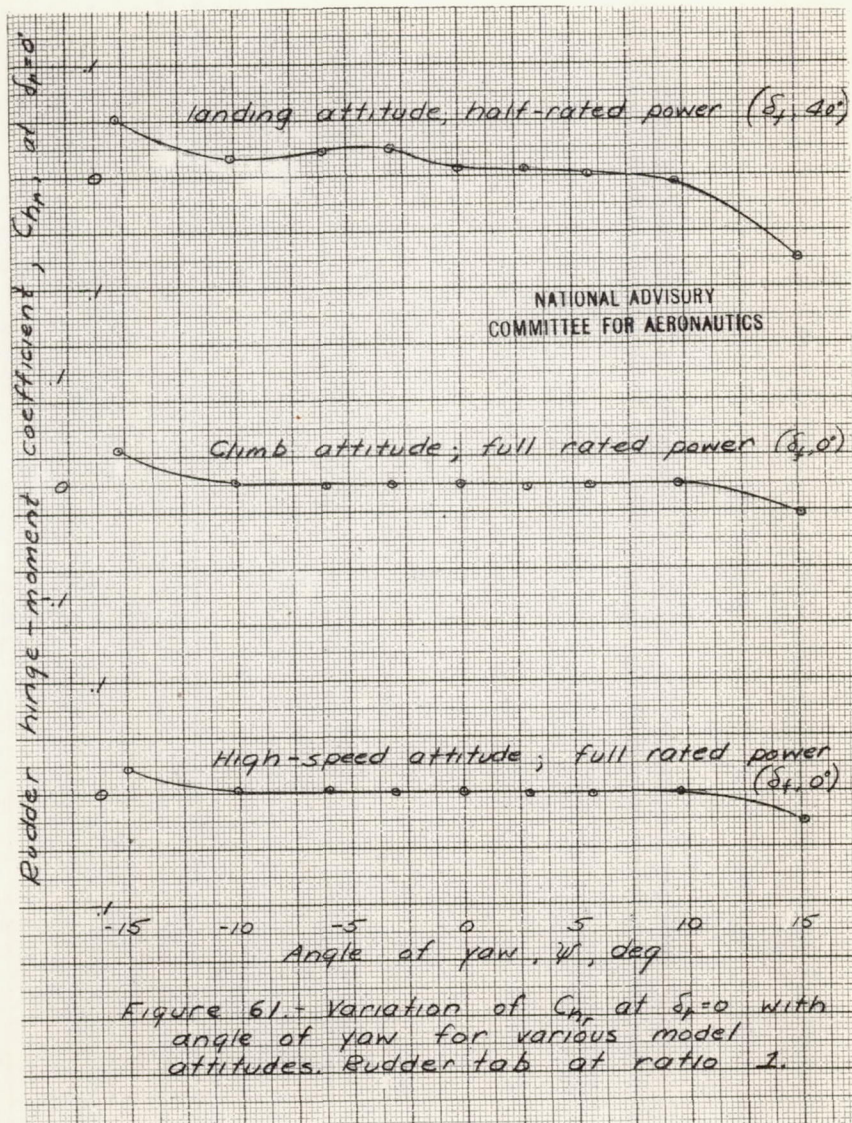 Rudder hinge-moment coefficient, Chr, at δr=0°
.1
landing attitude, half-rated power (δf, 40°)
0
-.1
NATIONAL ADVISORY
COMMITTEE FOR AERONAUTICS
.1
Climb attitude; full rated power (δf, 0°)
0
-.1
.1
High-speed attitude; full rated power
(δf, 0°)
0
.1
-15 -10 -5 0 5 10 15
Angle of yaw, ψ, deg
Figure 61.- Variation of Chr at δr=0 with
angle of yaw for various model
attitudes. Rudder tab at ratio 1.